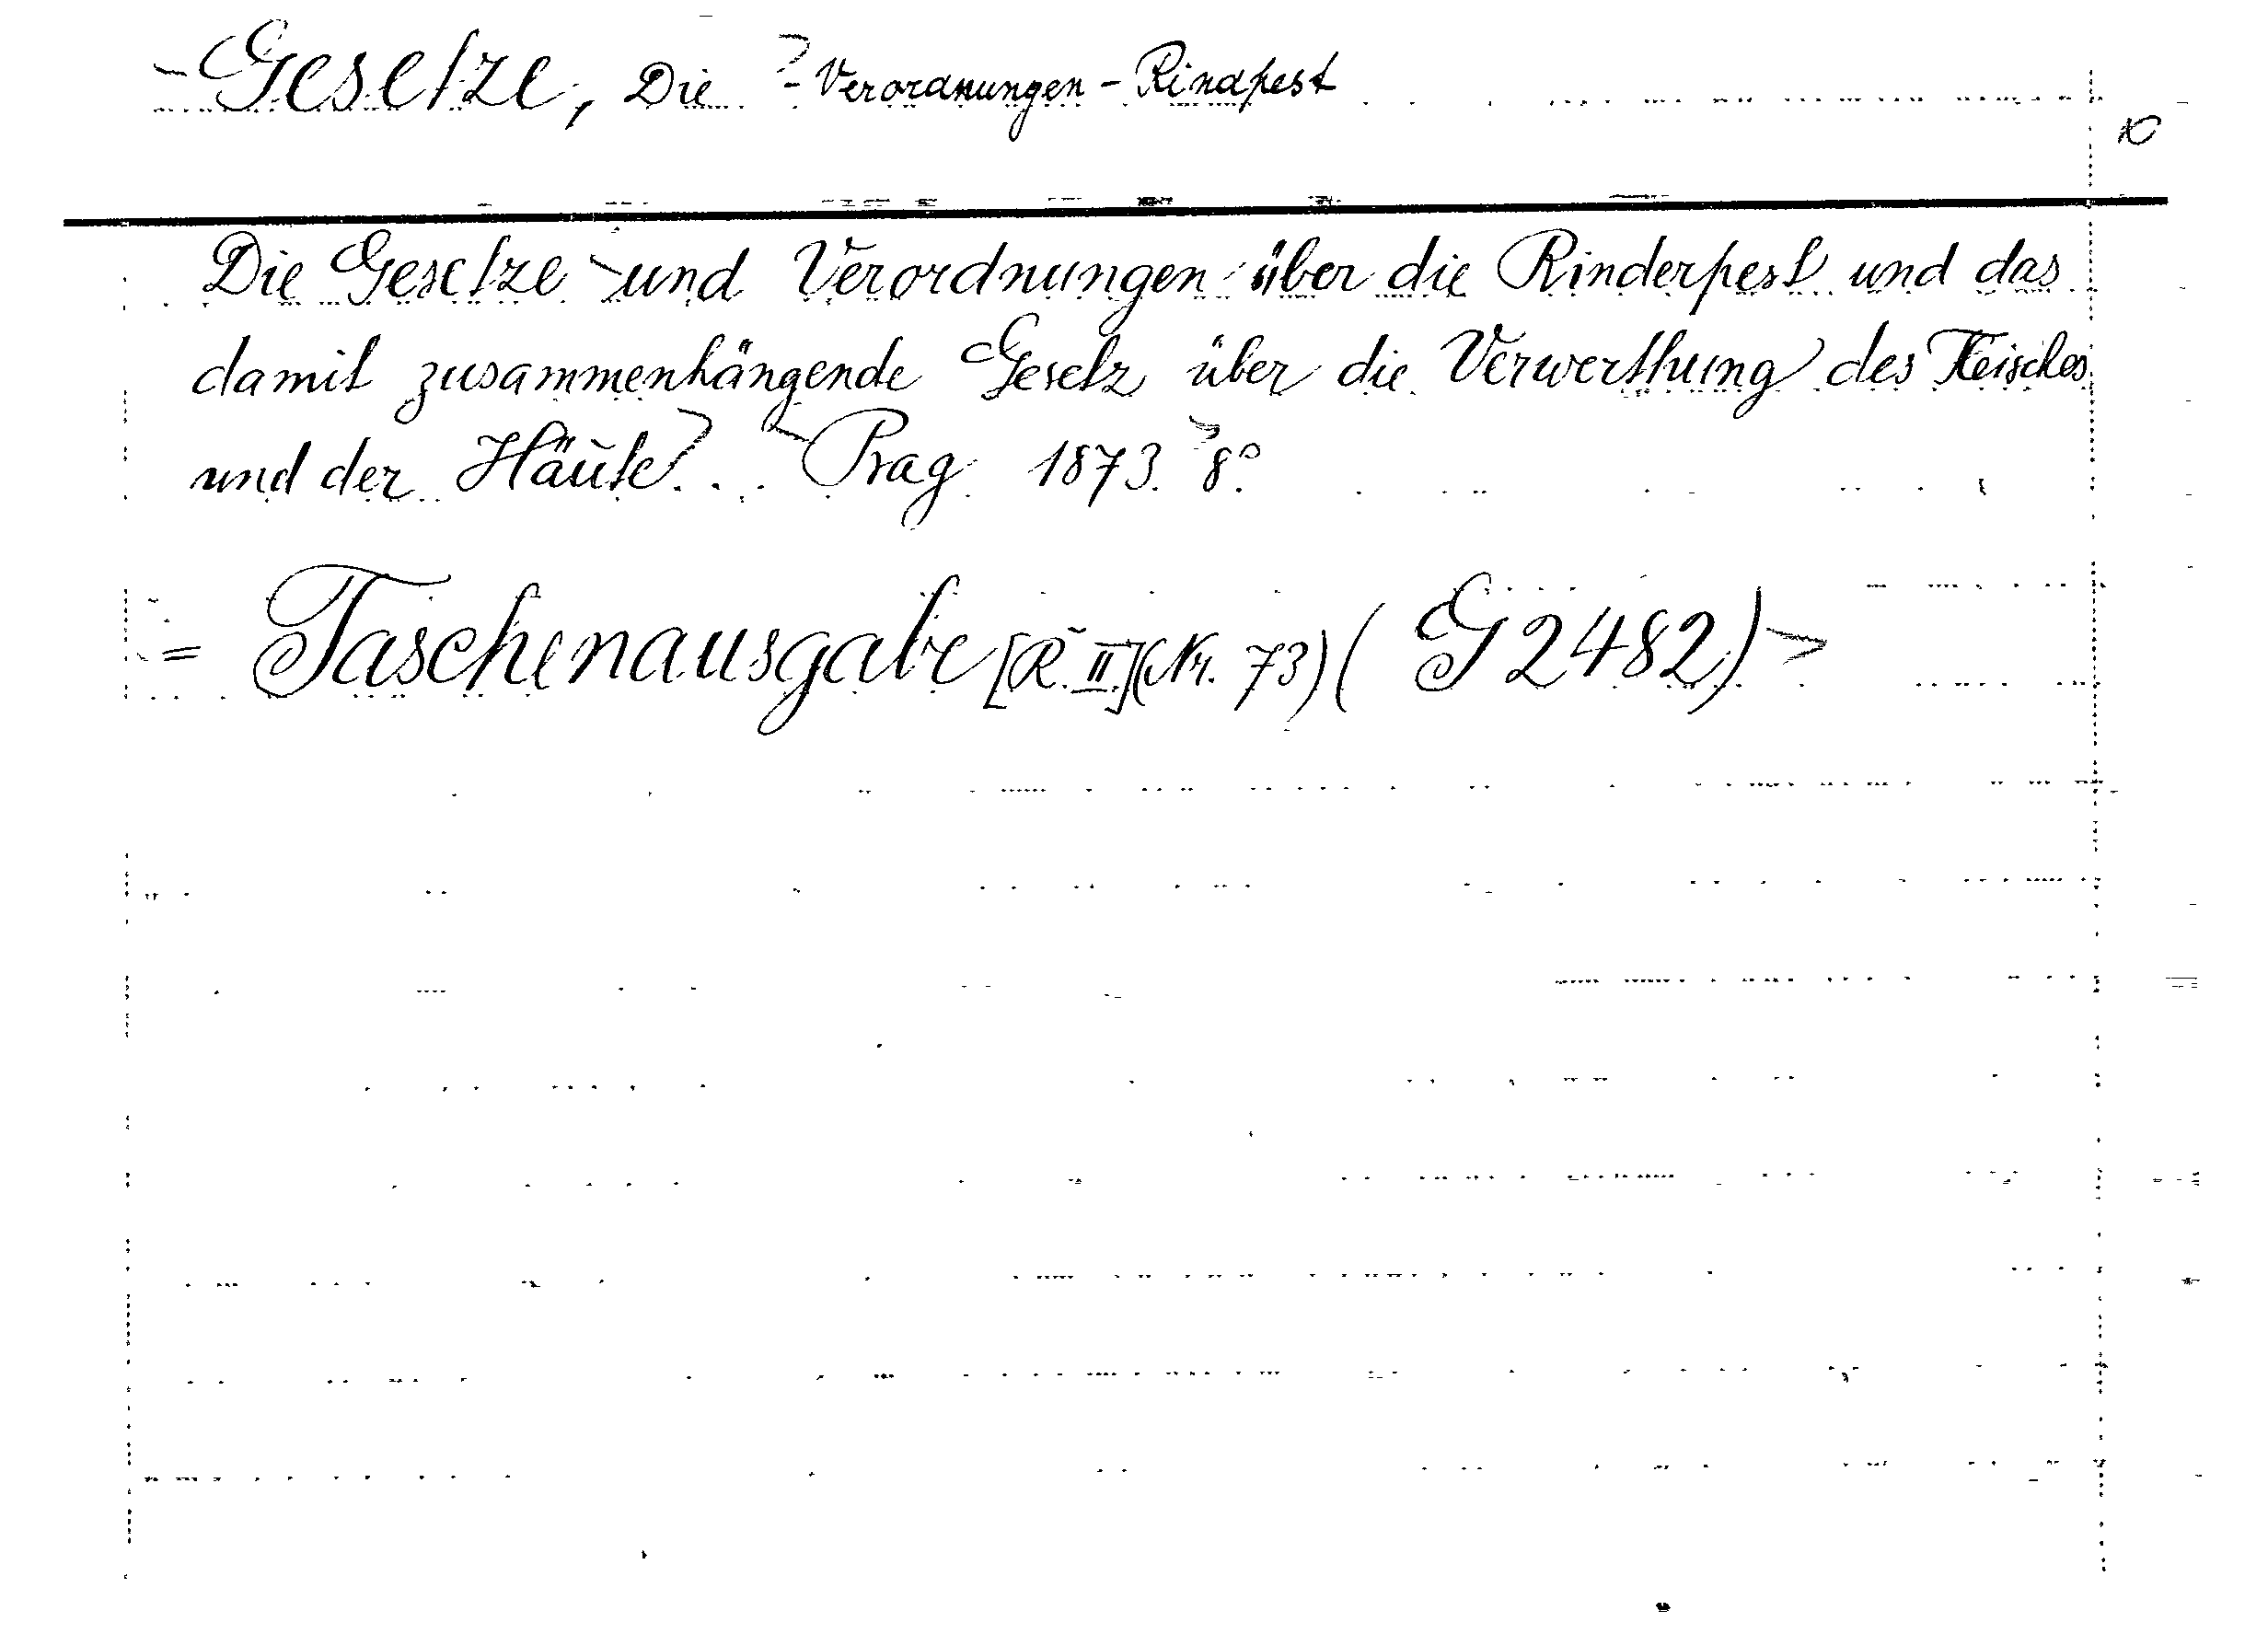 Gesetze, Die - Verordnungen - Rindpest
Die Gesetze und Verordnungen über die Rinderpest und das
damit zusammenhängende Gesetz über die Verwerthung des Fleisches
und der Häute... Prag 1873. 8°.
= Taschenausgabe [R. II.](Nr. 73) (G 2482)